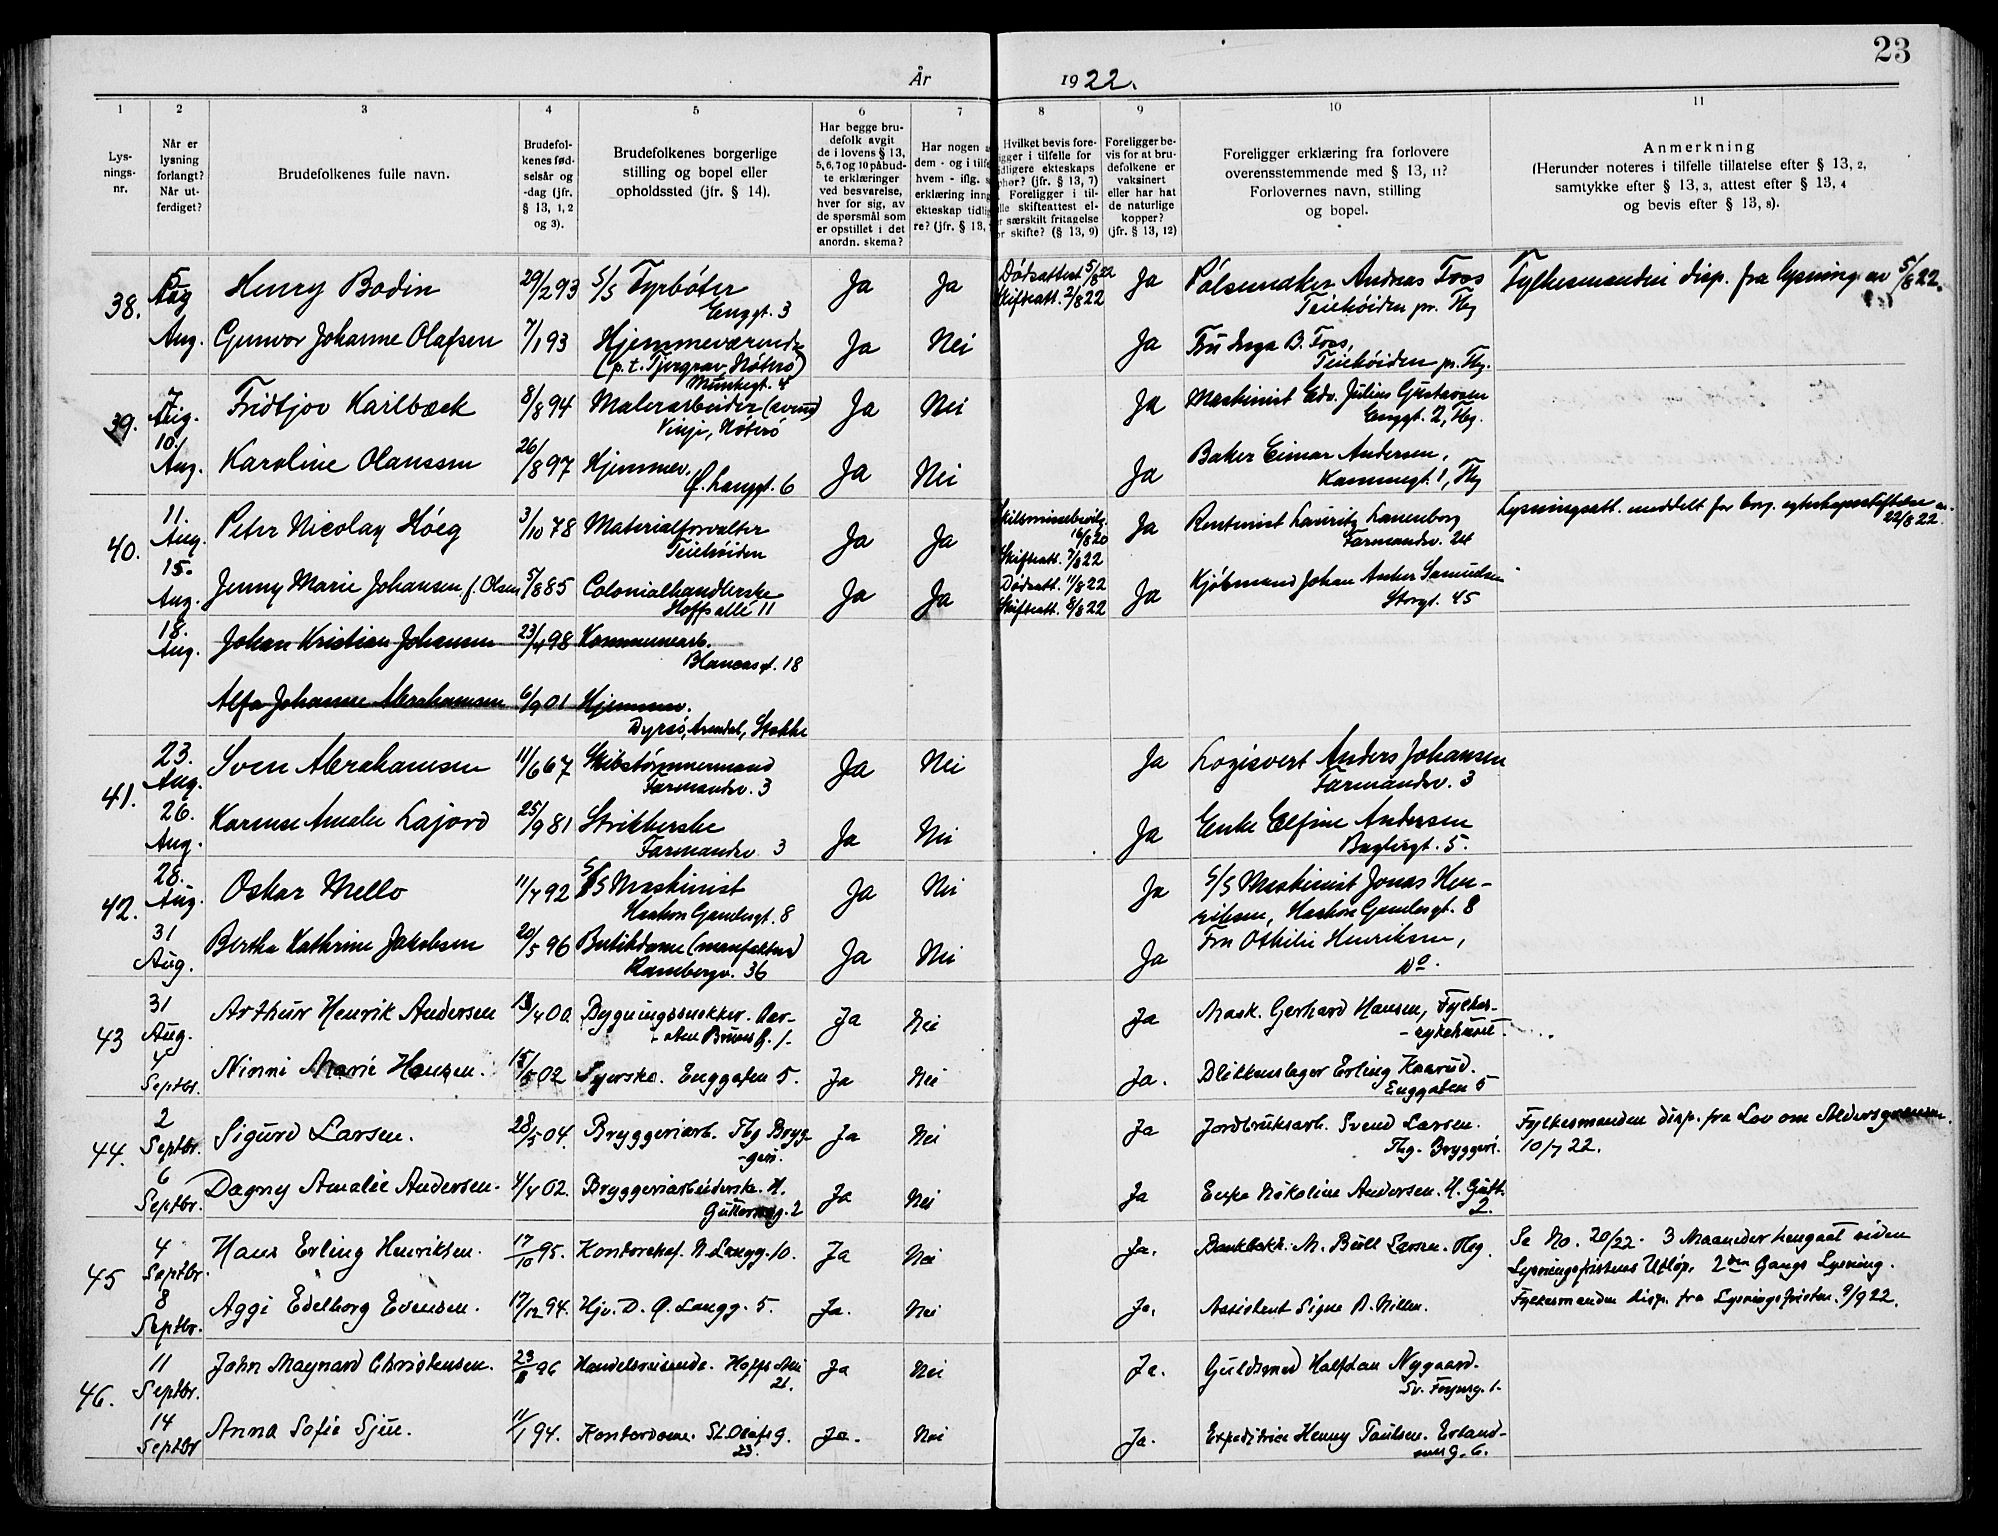 23
År 1922.
1 2 3 4 5 6 7 8 9 10 11
Lys-
nings-
nr.
Når er
lysning
forlangt?
Når ut-
ferdiget?
Brudefolkenes fulle navn.
Brudefol-
kenes fød-
selsår og
-dag (jfr.
§ 13, 1, 2
og 3).
Brudefolkenes borgerlige
stilling og bopel eller
opholdssted (jfr. § 14).
Har begge bru-
defolk avgit
de i lovens § 13,
5, 6, 7 og 10 påbud-
te erklæringer
ved besvarelse,
hver for sig, av
de spørsmål som
er opstillet i det
anordn. skema?
Har nogen a
dem - og i tilfe
hvem - iflg. s
erklæring inng
ekteskap tidlig
re? (jfr. § 13,
Hvilket bevis fore-
igger i tilfelle for
idligere ekteskaps
phør? (jfr. § 13, 7)
Foreligger i til-
lle skifteattest el-
r særskilt fritagelse
or skifte? (§ 13, 9)
Foreligger be-
vis for at bru-
defolkene er
vaksinert
eller har hat
de naturlige
kopper?
(jfr. § 13, 12)
Foreligger erklæring fra forlovere
overensstemmende med § 13, 11?
Forlovernes navn, stilling
og bopel.
Anmerkning
(Herunder noteres i tilfelle tillatelse efter § 13, 2,
samtykke efter § 13, 3, attest efter § 13, 4
og bevis efter § 13, 8).
38. 5 Aug Henry Bodin 29/2 93 S/S Fyrbøter
Enggt. 3
Ja Ja Dødsattest 5/8 22
Skifteatt. 2/8 22
Ja Pølsemaker Andreas Foss
Teiehøiden pr. Tbg
Fylkesmanden disp. fra lysning av 5/8 22.
Aug. Gunvor Johanne Olafsen 7/1 93 Hjemmeværende
(p.t. Tjergrav, Nøterø)
Ja Nei Ja Fru Inga B. Foss,
Teiehøiden pr. Tbg.
39. 7 Aug. Fridtjov Karlbæck 8/8 94 Munkegt. 4
Malerarbeider (svend)
Vinje, Nøterø
Ja Nei Ja Maskinist Edv. Julius Gustavsen
Enggt. 2, Tbg.
10. Aug. Karoline Olaussen 26/8 97 Hjemmev.
Ø. Langgt. 6
Ja Nei Ja Baker Einar Andersen,
Kammegt. 1, Tbg
40. 11. Aug. Peter Nicolay Høeg 3/10 78 Materialforvalter
Teiehøiden
Ja Ja Skilsmissebevilg.
16/8 20
Skifteatt. 7/8 22
Ja Rentenist Lauritz Lauenborg
Farmandsv. 24
Lysningsatt. meddelt for borg. egteskapsstiftelse
22/8 22.
15. Aug. Jenny Marie Johansen f. Olsen 5/8 85 Colonialhandlerske
Hoffs allé 11
Ja Ja Dødsatt. 11/8 22
Skifteatt. 8/8 22
Ja Kjøbmand Johan Anker Samuelsen
Storgt. 45
18. Aug. Johan Kristian Johansen 23/4 98 Kommunearb.
18
Alfa Johanne Abrahamsen 6/9 01 Hjemmev.
Dyrsø, Arendal, Stokke
41. 23. Aug. Sven Abrahamsen 11/6 67 Skibstømmermand
Farmandsv. 3
Ja Nei Ja Logisvert Anders Johansen
Farmandsv. 3
26. Aug. Karense Amalie Lajord 25/9 81 Strikkerske
Farmandsv. 3
Ja Nei Ja Enke Elfine Andersen
Baglergt. 5.
42. 28. Aug. Oskar Mello 11/7 92 S/S Maskinist
Haakon Gamlesgt. 8
Ja Nei Ja S/S Maskinist Jonas Hen-
riksen, Haakon Gamlesgt. 8
31 Aug. Bertha Kathrine Jakobsen 20/5 96 Butikdame (manufaktur)
Rambergv. 36
Ja Nei Ja Fru Othilie Henriksen,
Do.
43 31 Aug. Arthur Henrik Andersen 13/4 00. Bygningssnekker.
Bruns g. 1-
Ja Nei Ja Mask. Gerhard Hansen, Fylkes-
-sykehuset.
4 Septbr. Ninni Marie Hansen. 15/5 02 Syerske. Enggaten 5. Ja Nei Ja. Blikkenslager Erling Kaarud.
Enggaten 5
44. 2 Septbr. Sigurd Larsen. 28/5 04. Bryggeriarb. Tbg Bryg-
-geri.
Ja Nei Ja Jordbruksarb. Svend Larsen.
Tbg. Bryggeri.
Fylkesmanden disp. fra Lov om Aldersgrænsen.
10/7 22.
6 Septbr. Dagny Amalie Andersen. 4/4 02. Bryggeriarbeiderske. H.
Guttormsg. 2
Ja Nei Ja Enke Nikoline Andersen. H. Gutt.
2.
45 4 Septbr. Hans Erling Henriksen. 17/10 95. Kontorchef. N. Langg. 10. Ja Nei Ja. Bankbokh. M. Bull Larsen. Tbg. Se No. 20/22. 3 Maaneder hengaat siden
Lysningsfristens Utløp. 2den Gangs Lysning.
8 Septbr. Aggi Edelborg Evensen. 17/12 94. Hjv. D. Ø. Langg. 5. Ja. Nei Ja. Assistent Signe A. Nilsen. Fylkesmanden disp. fra Lysningsfristen. 9/9 22.
46. 11 Septbr. John Maynard Christensen. 23/8 96 Handelsreisende. Hoffs Alle
21.
Ja Nei Ja. Guldsmed Halfdan Nygaard.
Sv. Foynsg. 1-
14 Septbr Anna Sofie Sjue. 11/1 94. Kontordame. St. Olafs g.
23.
Ja. Nei Ja. Expeditrice Henny Paulsen. Erland-
sens g. 6.